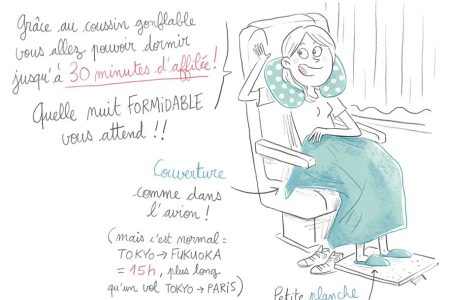 Grâce au coussin gonflable
vous allez pouvoir dormir
jusqu'à 30 minutes d'affilée !
Quelle nuit FORMiDABLE
vous attend !!
Couverture
comme dans
l'avion !
(mais c'est normal =
TOKYO → FUKUOKA
= 15h, plus long
qu'un vol TOKYO → PARiS)
Petite planche